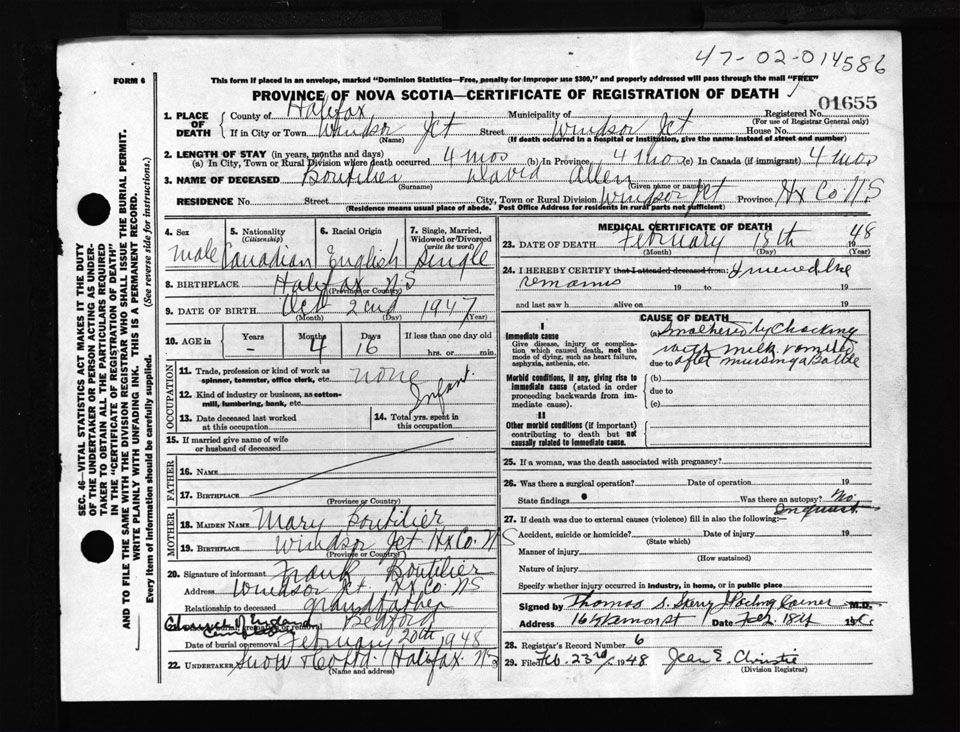 47-02-014586
FORM 6
This form if placed in an envelope, marked "Dominion Statistics—Free, penalty for improper use $300," and properly addressed will pass through the mail "FREE"
PROVINCE OF NOVA SCOTIA—CERTIFICATE OF REGISTRATION OF DEATH
01655
1. PLACE OF DEATH
County of Halifax Municipality of Registered No.
(For use of Registrar General only)
If in City or Town Windsor Jct Street Windsor Jct House No.
(Name) (If death occurred in a hospital or institution, give the name instead of street and number)
2. LENGTH OF STAY (in years, months and days)
(a) In City, Town or Rural Division where death occurred 4 mos (b) In Province 4 mos (c) In Canada (if immigrant) 4 mos
3. NAME OF DECEASED Boutilier David Allen
(Surname) (Given name or names)
RESIDENCE No. Street City, Town or Rural Division Windsor Jct Province Hx Co. NS
(Residence means usual place of abode. Post Office Address for residents in rural parts not sufficient)
SEC. 46—VITAL STATISTICS ACT MAKES IT THE DUTY
OF THE UNDERTAKER OR PERSON ACTING AS UNDER-
TAKER TO OBTAIN ALL THE PARTICULARS REQUIRED
IN THE "CERTIFICATE OF REGISTRATION OF DEATH"
AND TO FILE THE SAME WITH THE DIVISION REGISTRAR WHO SHALL ISSUE THE BURIAL PERMIT.
WRITE PLAINLY WITH UNFADING INK. THIS IS A PERMANENT RECORD.
Every item of Information should be carefully supplied. (See reverse side for instructions.)
4. Sex 5. Nationality 6. Racial Origin 7. Single, Married,
(Citizenship) Widowed or Divorced
(write the word)
male Canadian English Single
8. BIRTHPLACE Halifax NS
(Province or Country)
9. DATE OF BIRTH Oct 2nd 1947
(Month) (Day) (Year)
10. AGE in Years Months Days If less than one day old
- 4 16 hrs. or min.
OCCUPATION
11. Trade, profession or kind of work as
spinner, teamster, office clerk, etc. none
12. Kind of industry or business, as cotton-
mill, lumbering, bank, etc. Infant.
13. Date deceased last worked
at this occupation
14. Total yrs. spent in
this occupation
15. If married give name of wife
or husband of deceased
FATHER
16. NAME
17. BIRTHPLACE
(Province or Country)
MOTHER
18. MAIDEN NAME Mary Boutilier
19. BIRTHPLACE Windsor Jct Hx Co. NS
(Province or Country)
20. Signature of informant Frank Boutilier
Address Windsor Jct. Hx Co NS
Relationship to deceased Grandfather
Church of England Bedford
Date of burial or removal February 20th 1948
22. UNDERTAKER Snow & Co Ltd. Halifax NS
(Name and address)
MEDICAL CERTIFICATE OF DEATH
23. DATE OF DEATH February 18th 1948
(Month) (Day) (Year)
24. I HEREBY CERTIFY that I attended deceased from: I viewed the
remains 19 to 19
and last saw h alive on 19
CAUSE OF DEATH
I
Immediate cause
Give disease, injury or complica-
tion which caused death, not the
mode of dying, such as heart failure,
asphyxia, asthenia, etc.
(a) Smothered by Chocking
with milk
due to after nursing a Bottle
Morbid conditions, if any, giving rise to
immediate cause (stated in order
proceeding backwards from im-
mediate cause).
(b)
due to
(c)
II
Other morbid conditions (if important)
contributing to death but not
causally related to immediate cause.
25. If a woman, was the death associated with pregnancy?
26. Was there a surgical operation? Date of operation 19
State findings Was there an autopsy? No.
Inquest.
27. If death was due to external causes (violence) fill in also the following:—
Accident, suicide or homicide? Date of injury 19
(State which)
Manner of injury
(How sustained)
Nature of injury
Specify whether injury occurred in industry, in home, or in public place
Signed by Thomas S. M.D.
Address Date Feb. 18th 19
28. Registrar's Record Number 6
29. Filed Feb. 23rd 1948 Jean E. Christie
(Division Registrar)